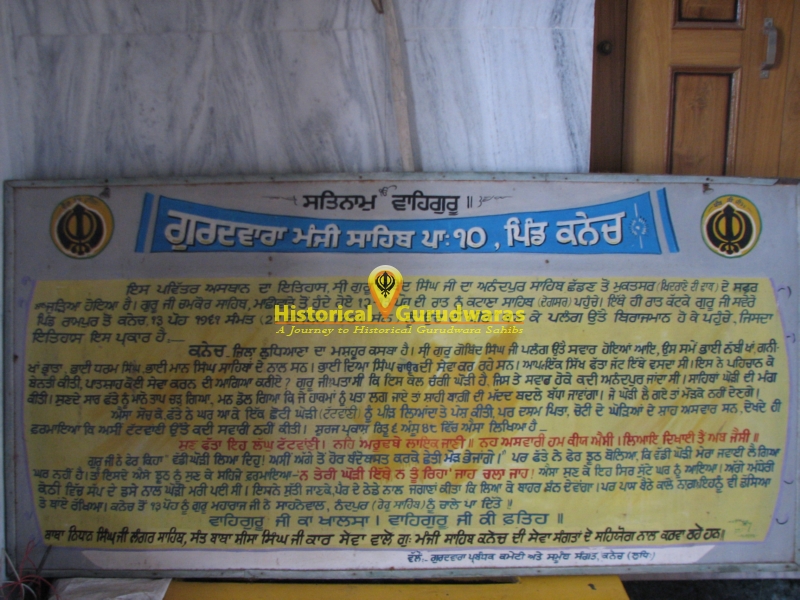 ਸਤਿਨਾਮੁ ੴ ਵਾਹਿਗੁਰੂ ॥
ਗੁਰਦਵਾਰਾ ਮੰਜੀ ਸਾਹਿਬ ਪਾ: ੧੦, ਪਿੰਡ ਕਨੇਚ
ਇਸ ਪਵਿੱਤਰ ਅਸਥਾਨ ਦਾ ਇਤਿਹਾਸ, ਸ੍ਰੀ ਗੁਰੂ ਸਿੰਘ ਜੀ ਦਾ ਅਨੰਦਪੁਰ ਸਾਹਿਬ ਛੱਡਣ ਤੋਂ ਮੁਕਤਸਰ (ਖਿਦਰਾਣੇ ਦੀ ਢਾਬ) ਦੇ ਸਫ਼ਰ
ਨਾਲ ਜੁੜਿਆ ਹੋਇਆ ਹੈ। ਗੁਰੂ ਜੀ ਚਮਕੌਰ ਸਾਹਿਬ, ਤੋਂ ਹੁੰਦੇ ਹੋਏ 13 ਦੀ ਰਾਤ ਨੂੰ ਕਟਾਣਾ ਸਾਹਿਬ (ਦੇਗਸਰ) ਪਹੁੰਚੇ। ਇੱਥੇ ਹੀ ਰਾਤ ਕੱਟਕੇ ਗੁਰੂ ਜੀ ਸਵੇਰੇ
ਪਿੰਡ ਰਾਮਪੁਰ ਤੋਂ ਕਨੇਚ, 13 ਪੋਹ ੧੭੬੧ ਸੰਮਤ ਕੇ ਪਲੰਗ ਉੱਤੇ ਬਿਰਾਜਮਾਨ ਹੋ ਕੇ ਪਹੁੰਚੇ, ਜਿਸਦਾ
ਇਤਿਹਾਸ ਇਸ ਪ੍ਰਕਾਰ ਹੈ:__
ਕਨੇਚ- ਜ਼ਿਲਾ ਲੁਧਿਆਣਾ ਦਾ ਮਸ਼ਹੂਰ ਕਸਬਾ ਹੈ। ਸ੍ਰੀ ਗੁਰੂ ਗੋਬਿੰਦ ਸਿੰਘ ਜੀ ਪਲੰਗ ਉੱਤੇ ਸਵਾਰ ਹੋਇਆਂ ਆਇ, ਉਸ ਸਮੇਂ ਭਾਈ ਨੱਬੀ ਖਾਂ, ਗਨੀ-
ਖਾਂ ਭਰਾਤਾ, ਭਾਈ ਧਰਮ ਸਿੰਘ, ਭਾਈ ਮਾਨ ਸਿੰਘ ਸਾਹਿਬਾਂ ਦੇ ਨਾਲ ਸਨ। ਭਾਈ ਦਇਆ ਸਿੰਘ ਚਾਉਰ ਦੀ ਸੇਵਾ ਕਰ ਰਹੇ ਸਨ। ਆਪ:ਇਕ ਸਿੱਖ ਫੱਤਾ ਜੱਟ ਇੱਥੇ ਵਸਦਾ ਸੀ। ਇਸ ਨੇ ਪਹਿਚਾਨ ਕੇ
ਬੇਨਤੀ ਕੀਤੀ, ਪਤਸ਼ਾਹ ਕੋਈ ਸੇਵਾ ਕਰਨ ਦੀ ਆਗਿਆ ਕਰੀਏ? ਗੁਰੂ ਜੀ:ਪਤਾ ਸੀ ਕਿ ਇਸ ਕੋਲ ਚੰਗੀ ਘੋੜੀ ਹੈ, ਜਿਸ ਤੇ ਸਵਾਰ ਹੋਕੇ ਕਦੀ ਅਨੰਦਪੁਰ ਜਾਂਦਾ ਸੀ। ਸਾਹਿਬਾਂ ਘੋੜੀ ਦੀ ਮੰਗ
ਕੀਤੀ। ਸੁਣਦੇ ਸਾਰ ਫੱਤੇ ਨੂੰ ਮਾਨੋ ਤਾਪ ਚੜ੍ਹ ਗਿਆ, ਮਨ ਡੋਲ ਗਿਆ ਕਿ ਜੇ ਹਾਕਮਾਂ ਨੂੰ ਪਤਾ ਲਗ ਜਾਏ ਤਾਂ ਸ਼ਾਹੀ ਬਾਗੀ ਦੀ ਮੱਦਦਾ ਬਦਲੇ ਬੱਧਾ ਜਾਵਾਂਗਾ। ਜੇ ਘੋੜੀ ਲੈ ਗਏ ਤਾਂ ਮੋੜਕੇ ਨਹੀਂ ਦੇਣਗੇ।
ਐਸਾ ਸੋਚ ਕੇ, ਫੱਤੇ ਨੇ ਘਰ ਆ ਕੇ, ਇੱਕ ਛੋਟੀ ਘੋੜੀ (ਟੱਟਵਾਣੀ) ਨੂੰ ਪੀੜ ਲਿਆਂਦਾ ਤੇ ਪੇਸ਼ ਕੀਤੀ, ਪਰ ਦਸਮ ਪਿਤਾ, ਚੋਟੀ ਦੇ ਘੋੜਿਆਂ ਦੇ ਸ਼ਾਹ ਅਸਵਾਰ ਸਨ, ਦੇਖਦੇ ਹੀ
ਫ਼ਰਮਾਇਆ ਕਿ ਅਸੀਂ ਟੱਟਵਾਣੀ ਉੱਤੇ ਕਦੀ ਸਵਾਰੀ ਨਹੀਂ ਕੀਤੀ। ਸੂਰਜ ਪ੍ਰਕਾਸ਼ ਰਿਤੁ ੬ ਅੰਸੂ ੪੮ ਵਿੱਚ ਐਸਾ ਲਿਖਿਆ ਹੈ —
ਸੁਣ ਫੱਤਾ ਇਹ ਲਘੁ ਟੱਟਵਾਣੀ। ਨਹਿ ਅਰੂਢਬੋ ਲਾਇਕ ਜਾਣੀ॥ ਨਹ ਅਸਵਾਰੀ ਹਮ ਕੀਯ ਐਸੀ। ਲਿਆਇ ਦਿਖਾਈ ਤੈਂ ਅਬ ਜੈਸੀ॥
ਗੁਰੂ ਜੀ ਨੇ ਫੇਰ ਕਿਹਾ ਵੱਡੀ ਘੋੜੀ ਲਿਆ ਦਿਹੁ! ਅਸੀਂ ਅੱਗੇ ਤੋਂ ਹੋਰ ਬੰਦੋਬਸਤ ਕਰਕੇ ਛੇਤੀ ਮੋੜ ਭੇਜਾਂਗੇ।" ਪਰ ਫੱਤੇ ਨੇ ਫੇਰ ਝੂਠ ਬੋਲਿਆ, ਕਿ ਵੱਡੀ ਘੋੜੀ ਮੇਰਾ ਜਵਾਈ ਲੈ ਗਿਆ
ਘਰ ਨਹੀਂ ਹੈ। ਤਾਂ ਇਸਦੇ ਐਸੇ ਝੂਠ ਨੂੰ ਸੁਣ ਕੇ ਸਹਿਜੇ ਫ਼ਰਮਾਇਆ-ਨ ਤੇਰੀ ਘੋੜੀ ਇੱਥੇ ਨ ਤੂੰ ਰਿਹਾ' ਜਾਹ ਚਲਾ ਜਾਹ। ਐਸਾ ਸੁਣ ਕੇ ਇਹ ਸਿਰ ਸੁੱਟੇ ਘਰ ਨੂੰ ਆਇਆ। ਅੱਗੇ ਅੰਧੇਰੀ
ਕੋਠੀ ਵਿੱਚ ਸੱਪ ਦੇ ਡਸੇ ਨਾਲ ਘੋੜੀ ਮਰੀ ਪਈ ਸੀ। ਇਸਨੇ ਸੁੱਤੀ ਜਾਣਕੇ, ਪੈਰ ਦੇ ਠੇਡੇ ਨਾਲ ਜਗਾਣਾ ਕੀਤਾ ਕਿ ਲਿਆ ਕੇ ਬਾਹਰ ਬੰਨ ਦੇਵਾਂਗਾ। ਪਰ ਪਾਸ ਬੈਠੇ ਕਾਲੇ ਨਾਗ ਇਹਨੂੰ ਵੀ ਡੱਸਿਆ
ਤੇ ਥਾਂਏ ਰੱਖਿਆ। ਕਨੇਚ ਤੋਂ 13 ਪੋਹ ਨੂੰ ਗੁਰੂ ਮਹਾਰਾਜ ਜੀ ਨੇ ਸਾਹਨੇਵਾਲ, ਨੰਦਪੁਰ (ਰੇਰੂ ਸਾਹਿਬ) ਨੂੰ ਚਾਲੇ ਪਾ ਦਿੱਤੇ॥
ਵਾਹਿਗੁਰੂ ਜੀ ਕਾ ਖਾਲਸਾ। ਵਾਹਿਗੁਰੂ ਜੀ ਕੀ ਫ਼ਤਿਹ॥
ਬਾਬਾ ਨਿਧਾਨ ਸਿੰਘ ਜੀ ਲੰਗਰ ਸਾਹਿਬ, ਸੰਤ ਬਾਬਾ ਸ਼ੀਸ਼ਾ ਸਿੰਘ ਜੀ ਕਾਰ ਸੇਵਾ ਵਾਲੇ ਗੁ: ਮੰਜੀ ਸਾਹਿਬ ਕਨੇਚ ਦੀ ਸੇਵਾ ਸੰਗਤਾਂ ਦੇ ਸਹਿਯੋਗ ਨਾਲ ਕਰਵਾ ਰਹੇ ਹਨ।
ਵੱਲੋਂ:- ਗੁਰਦਵਾਰਾ ਪ੍ਰਬੰਧਕ ਕਮੇਟੀ ਅਤੇ ਸਮੂੰਹ ਸੰਗਤ, ਕਨੇਚ (ਲੁਧਿ:)
Historical Gurudwaras
A Journey to Historical Gurudwara Sahibs